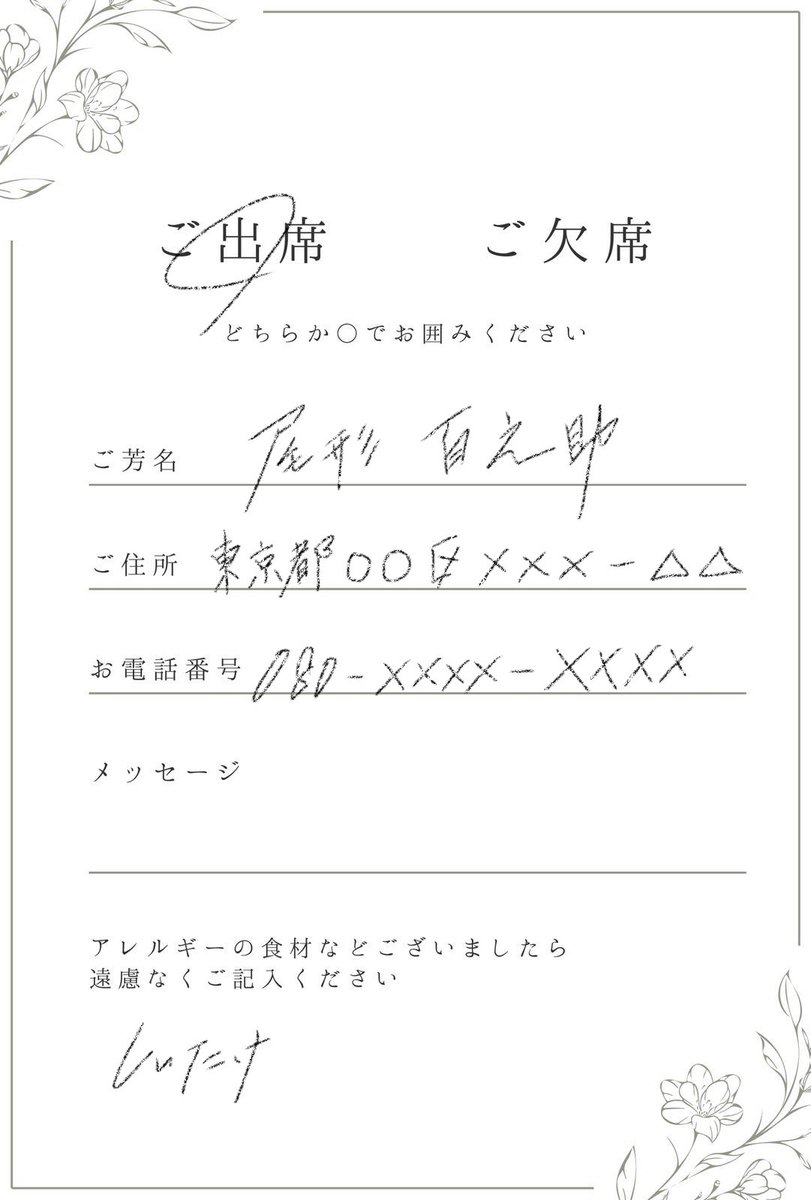 ご出席 ご欠席
どちらか〇でお囲みください
ご芳名 尾形 百之助
ご住所 東京都〇〇区×××-△△
お電話番号 080-××××-××××
メッセージ
アレルギーの食材などございましたら
遠慮なくご記入ください
しいたけ